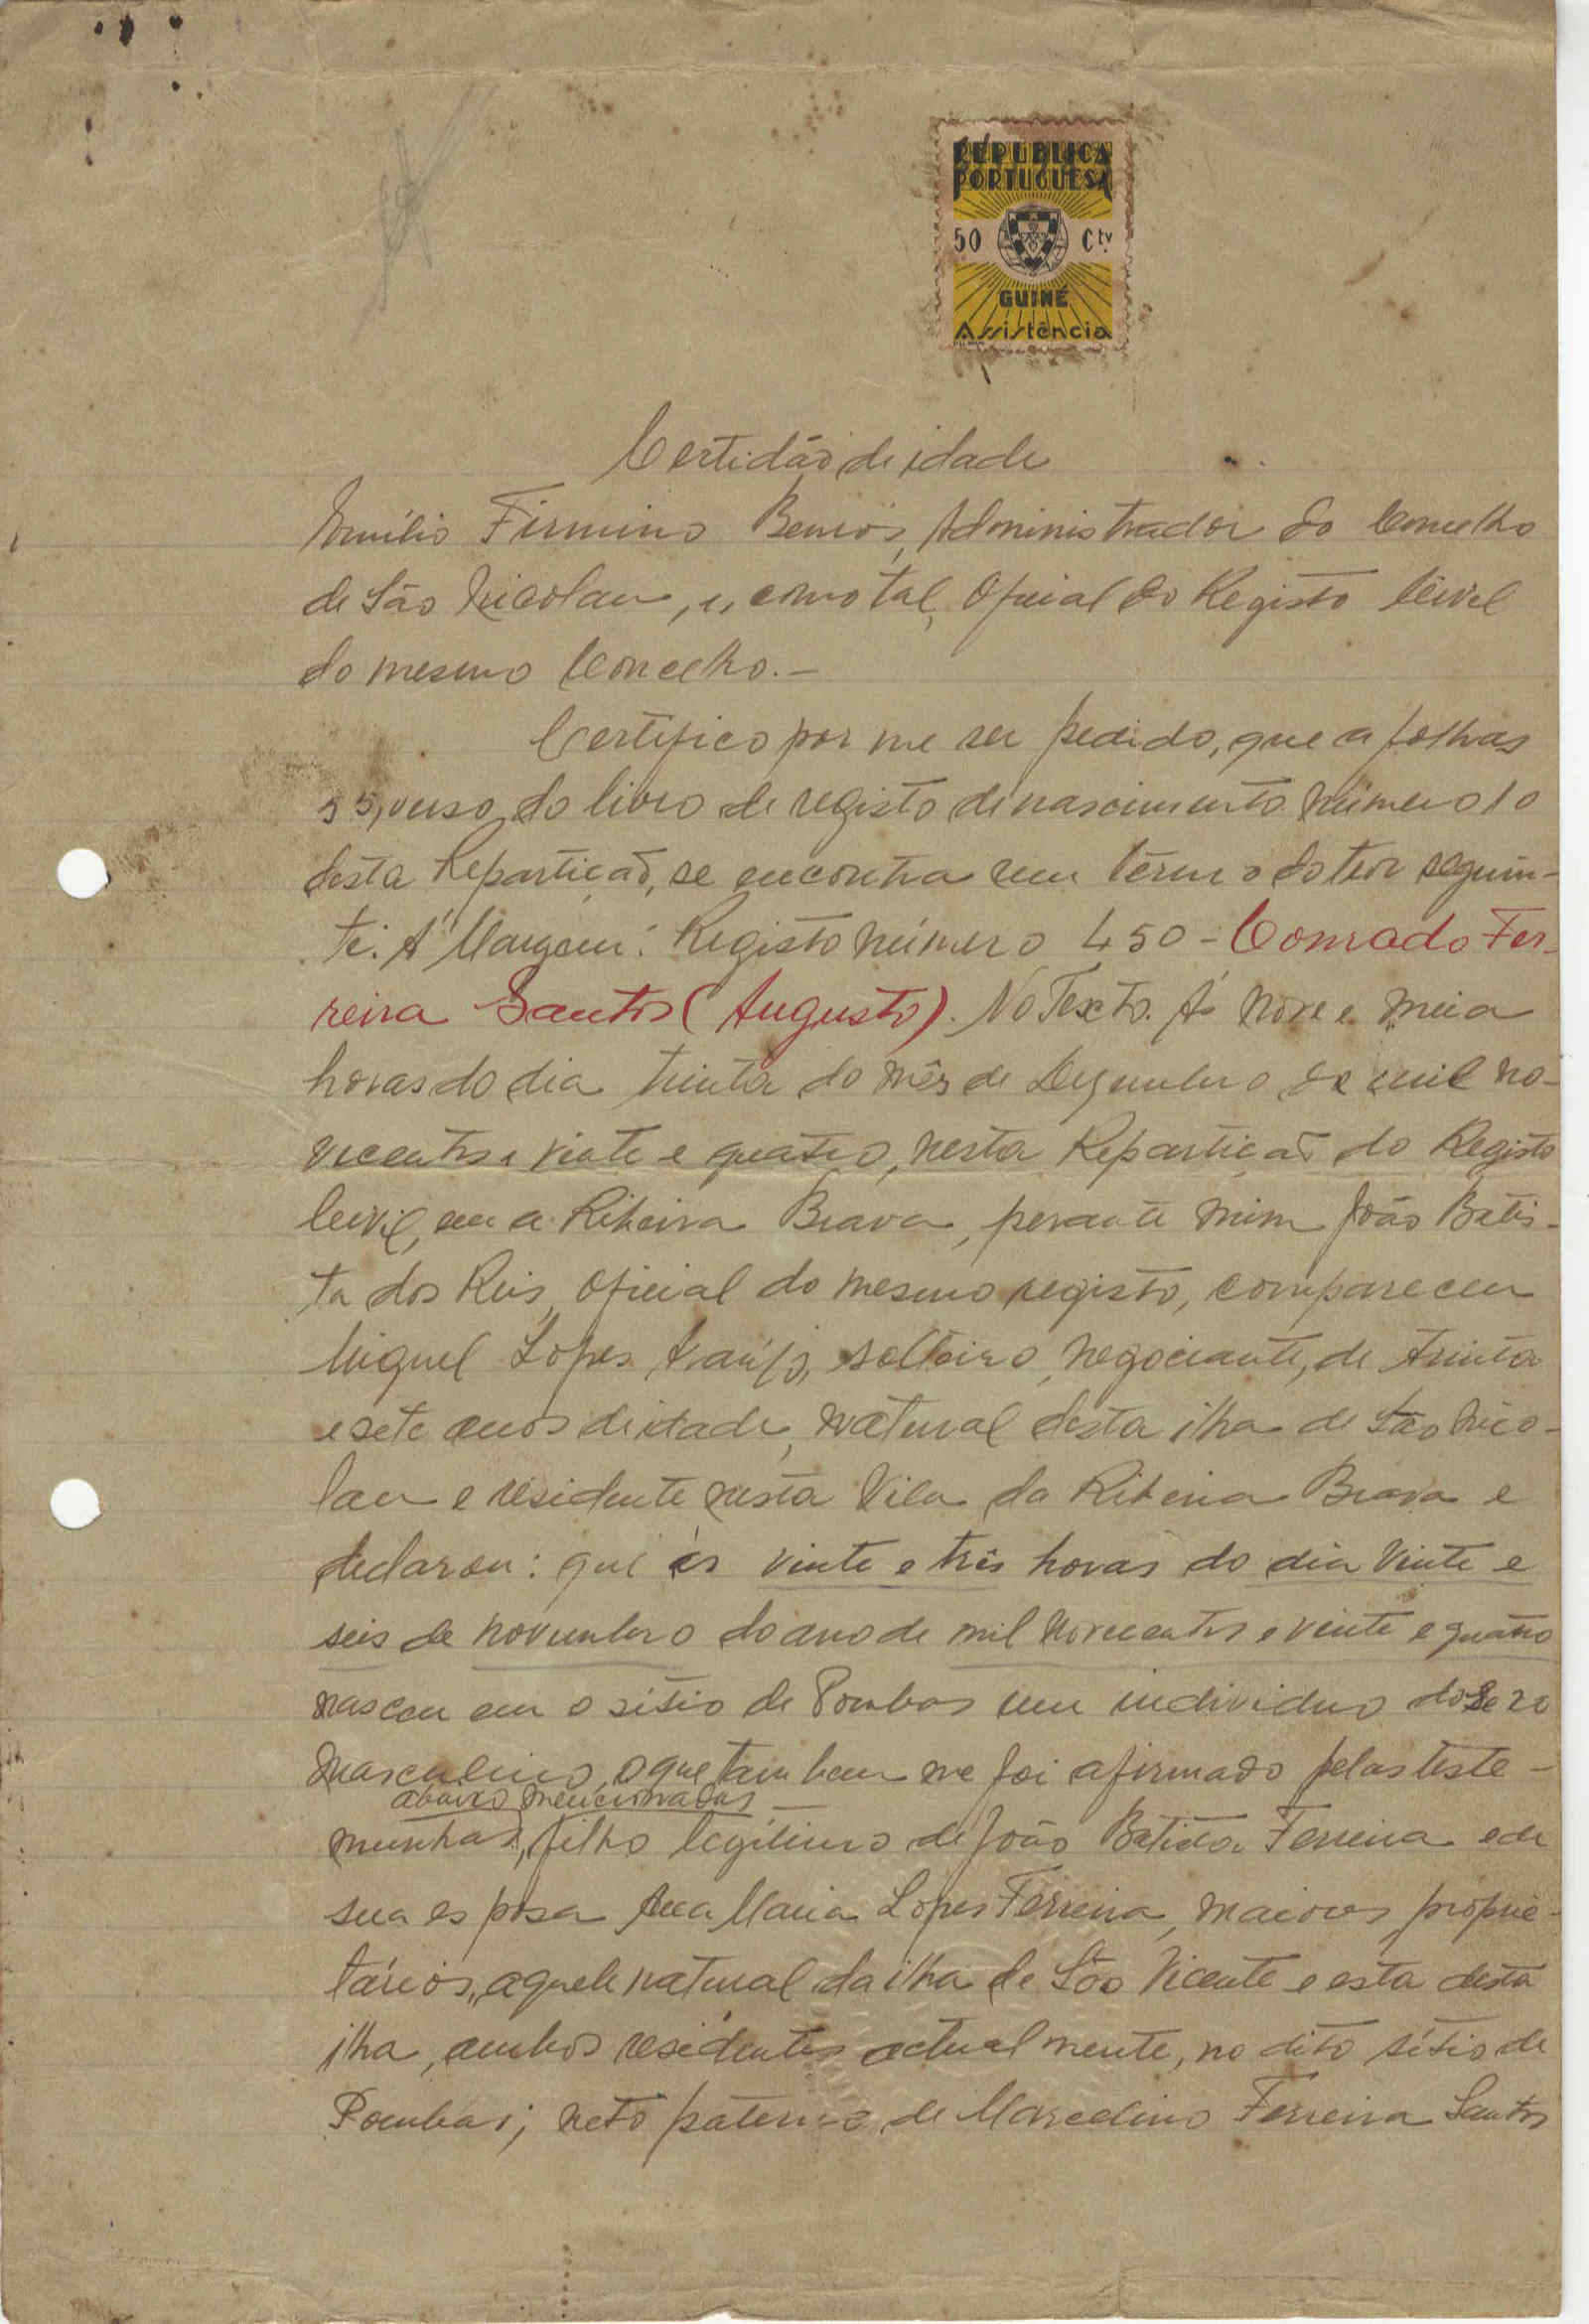 REPUBLICA
PORTUGUESA
50 Ctv
GUINÉ
Assistência
Certidão de idade
Emílio Firmino Benrós, Administrador do Concelho
de São Nicolau, e, como tal, Oficial do Registo Civil
do mesmo Concelho.-
Certifico por me ser pedido, que a folhas
55, verso, do livro de registo de nascimento número 10
desta Repartição, se encontra um têrmo do teor seguin-
te: Á Margem: Registo número 450 - Conrado Fer-
reira Santos (Augusto). No Texto. Ás nove e meia
horas do dia trinta do mês de Dezembro de mil no-
vecentos e vinte e quatro, nesta Repartição do Registo
Civil, em a Ribeira Brava, perante mim João Batis-
ta dos Reis, Oficial do mesmo registo, compareceu
Miguel Lopes Araújo, solteiro, negociante, de trinta
e sete anos de idade, natural desta ilha de São Nico-
lau e residente nesta Vila da Ribeira Brava e
declarou: que ás vinte e três horas do dia vinte e
seis de novembro do ano de mil novecentos e vinte e quatro
nasceu em o sítio de Pombas um individuo do sexo
masculino, o que tambem me foi afirmado pelas teste-
abaixo mencionadas
munhas, filho legítimo de João Batista Ferreira e de
sua esposa Ana Maria Lopes Ferreira, maiores proprie-
tários, aquele natural da ilha de São Vicente e esta desta
ilha, ambos residentes actualmente, no dito sítio de
Pombas; neto paterno de Marcelino Ferreira Santos